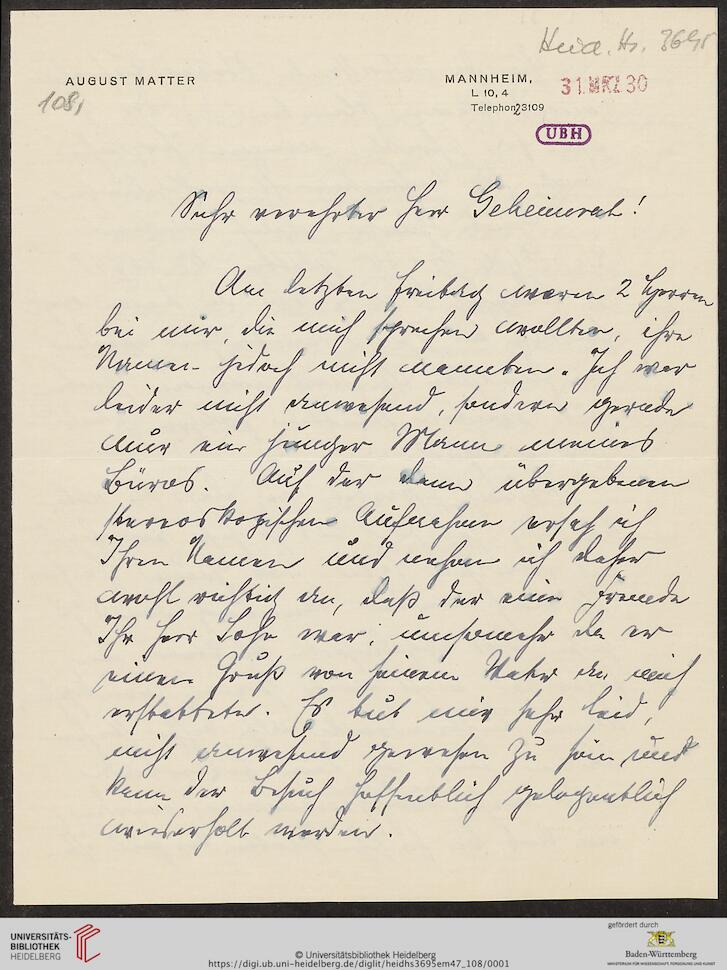 Heid. Hs. 3695
AUGUST MATTER
MANNHEIM,
31. MRZ. 30
L 10, 4
108,
Telephon 23109
UBH
Sehr verehrter Herr Geheimrat!
Am letzten Freitag waren 2 Herren
bei mir, die mich sprechen wollten, ihre
Namen jedoch nicht nannten. Ich war
leider nicht anwesend, sondern gerade
nur ein junger Mann meines
Büros. Auf der dann übergebenen
stereoskopischen Aufnahme ersah ich
Ihren Namen und nehme ich daher
wohl richtig an, daß der eine Fremde
Ihr Herr Sohn war, umsomehr da er
einen Gruß von seinem Vater an mich
erstattete. Es tut mir sehr leid,
nicht anwesend gewesen zu sein und
kann der Besuch hoffentlich gelegentlich
wiederholt werden.
UNIVERSITÄTS-
BIBLIOTHEK
HEIDELBERG
© Universitätsbibliothek Heidelberg
https://digi.ub.uni-heidelberg.de/diglit/heidhs3695em47_108/0001
gefördert durch
Baden-Württemberg
MINISTERIUM FÜR WISSENSCHAFT, FORSCHUNG UND KUNST